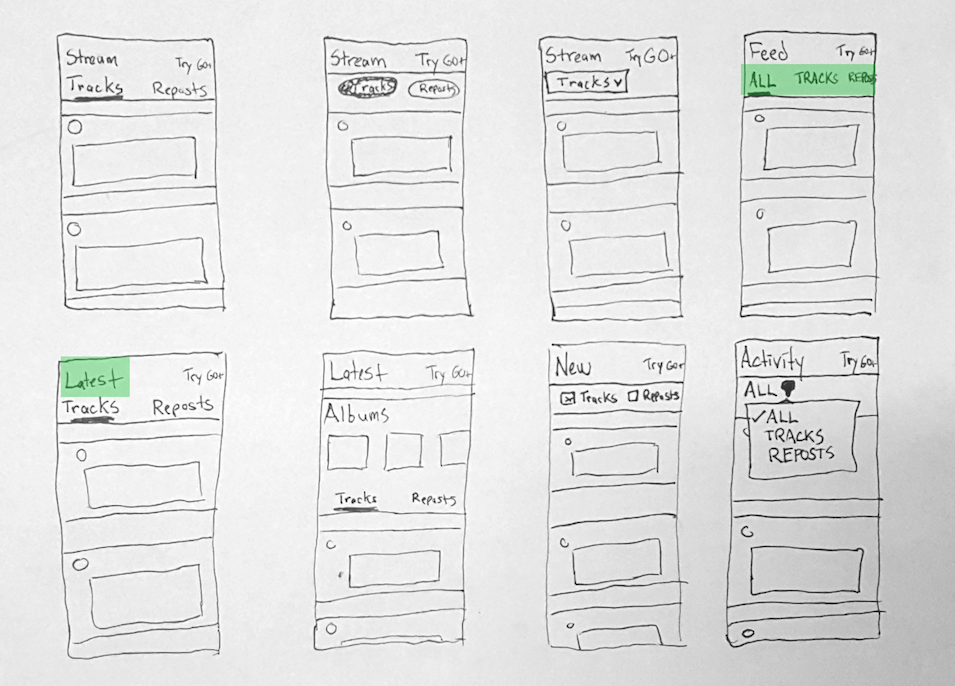 Stream Try GO+
Tracks Reposts
Stream Try GO+
Tracks Reposts
Stream Try GO+
Tracks
Feed Try GO+
ALL TRACKS REPOS
Latest Try GO+
Tracks Reposts
Latest Try GO+
Albums
Tracks Reposts
New Try GO+
Tracks Reposts
Activity Try GO+
ALL
ALL
TRACKS
REPOSTS